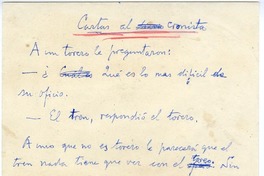 Cartas al cronista
A un torero le preguntaron:
— ¿ Qué es lo mas difícil de
su oficio.
— El tren, respondió el torero.
A unos que no es torero le parecerá que el
tren nada tiene que ver con el toreo. Sin